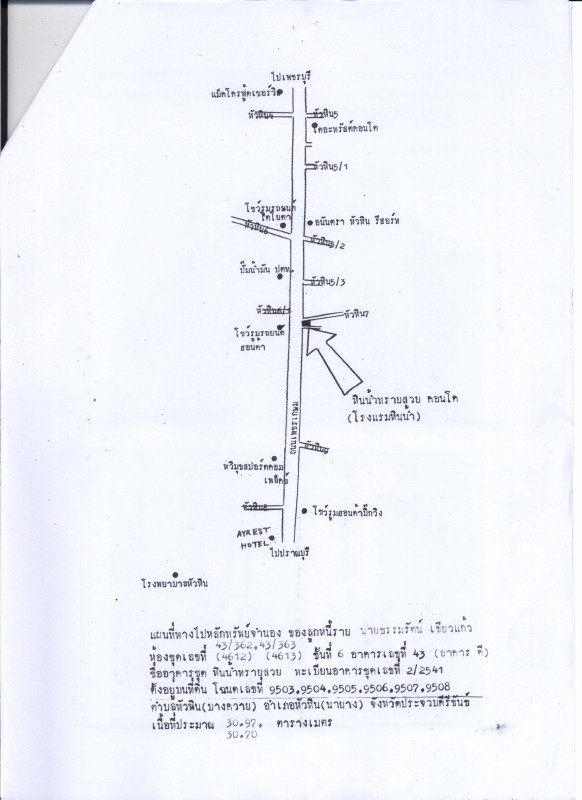 ไปเพชรบุรี
แม็คโครฟู้ดเซอร์วิส
หัวหิน4
หัวหิน5
หัวหิน5/1
โชว์รูมรถยนต์
โตโยตา
อนันตรา หัวหิน รีสอร์ท
หัวหิน6
หัวหิน5/2
ปั๊มน้ำมัน ปตท.
หัวหิน5/3
หัวหิน6/1
หัวหิน7
โชว์รูมรถยนต์
ฮอนด้า
หินน้ำทรายสวย คอนโด
(โรงแรมหินน้ำ)
ถนนเพชรเกษม
หัวหิน9
ทวิมุขสปอร์ตคอม
เพล็กซ์
หัวหิน8
โชว์รูมฮอนด้าบิ๊กวิง
AYREST
HOTEL
ไปปราณบุรี
โรงพยาบาลหัวหิน
แผนที่ทางไปหลักทรัพย์จำนอง ของลูกหนี้ราย นายธรรมรัตน์ เขียวแก้ว
43/362,43/363
ห้องชุดเลขที่ (4612) (4613) ชั้นที่ 6 อาคารเลขที่ 43 (อาคาร ดี)
ชื่ออาคารชุด หินน้ำทรายสวย ทะเบียนอาคารชุดเลขที่ 2/2541
ตั้งอยู่บนที่ดิน โฉนดเลขที่ 9503,9504,9505,9506,9507,9508
ตำบลหัวหิน(บางควาย) อำเภอหัวหิน(นายาง) จังหวัดประจวบคีรีขันธ์
เนื้อที่ประมาณ 30.97. ตารางเมตร
30.70